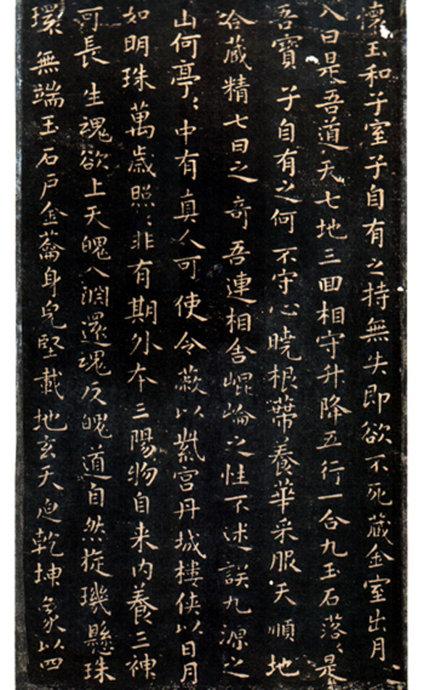 懷玉和子室子自有之持無失即欲不死藏金室出月
入日是吾道天七地三回相守升降五行一合九玉石落〻是
吾寶子自有之何不守心曉根蔕養華采服天順地
合藏精七日之奇吾連相舍崐崘之性不迷誤九源之
山何亭〻中有真人可使令蔽以紫宮丹城樓俠以日月
如明珠萬歲照〻非有期外本三陽物自来内養三神
可長生魂欲上天魄入淵還魂反魄道自然旋璣懸珠
環無端玉石戶金蘥身皃堅載地玄天迫乾坤象以四